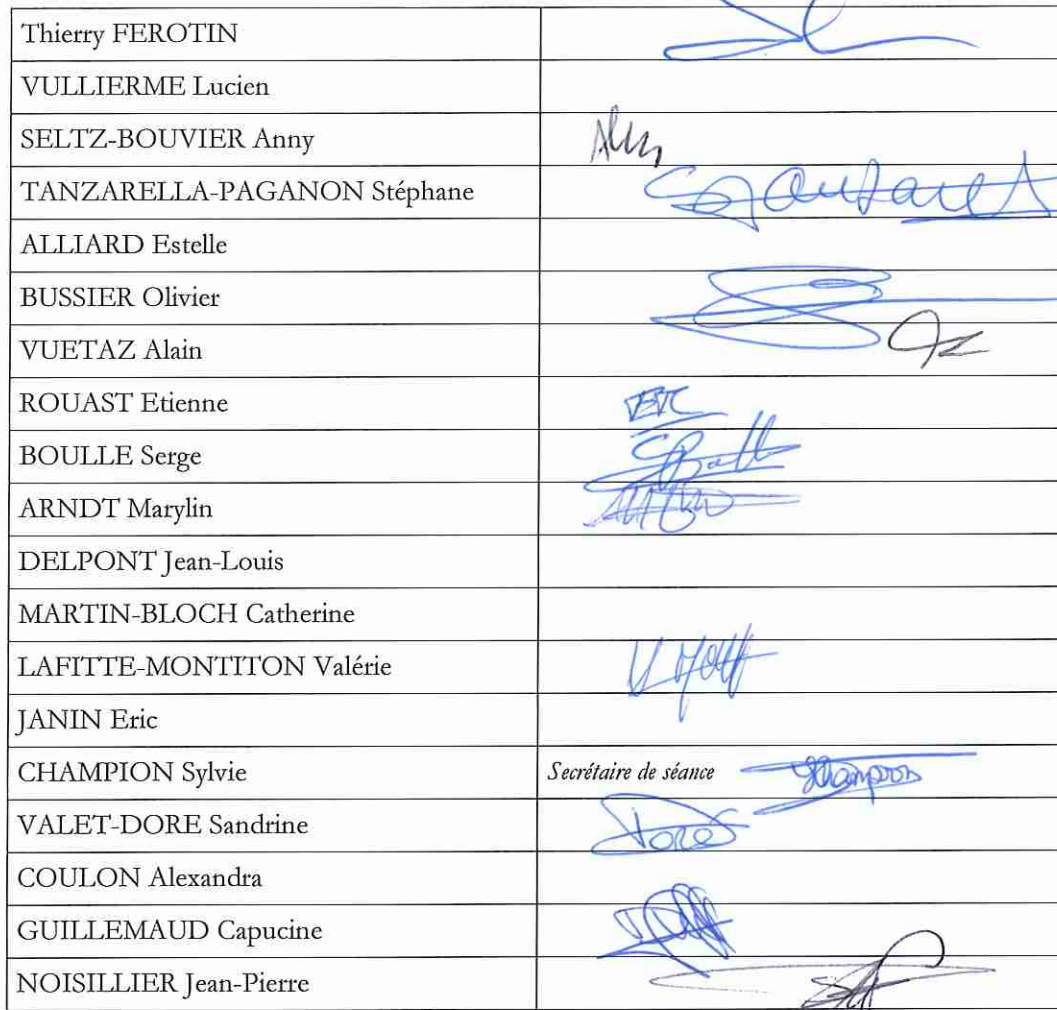 Thierry FEROTIN
VULLIERME Lucien
SELTZ-BOUVIER Anny
TANZARELLA-PAGANON Stéphane
ALLIARD Estelle
BUSSIER Olivier
VUETAZ Alain
ROUAST Etienne
BOULLE Serge
ARNDT Marylin
DELPONT Jean-Louis
MARTIN-BLOCH Catherine
LAFITTE-MONTITON Valérie
JANIN Eric
CHAMPION Sylvie Secrétaire de séance
VALET-DORE Sandrine
COULON Alexandra
GUILLEMAUD Capucine
NOISILLIER Jean-Pierre